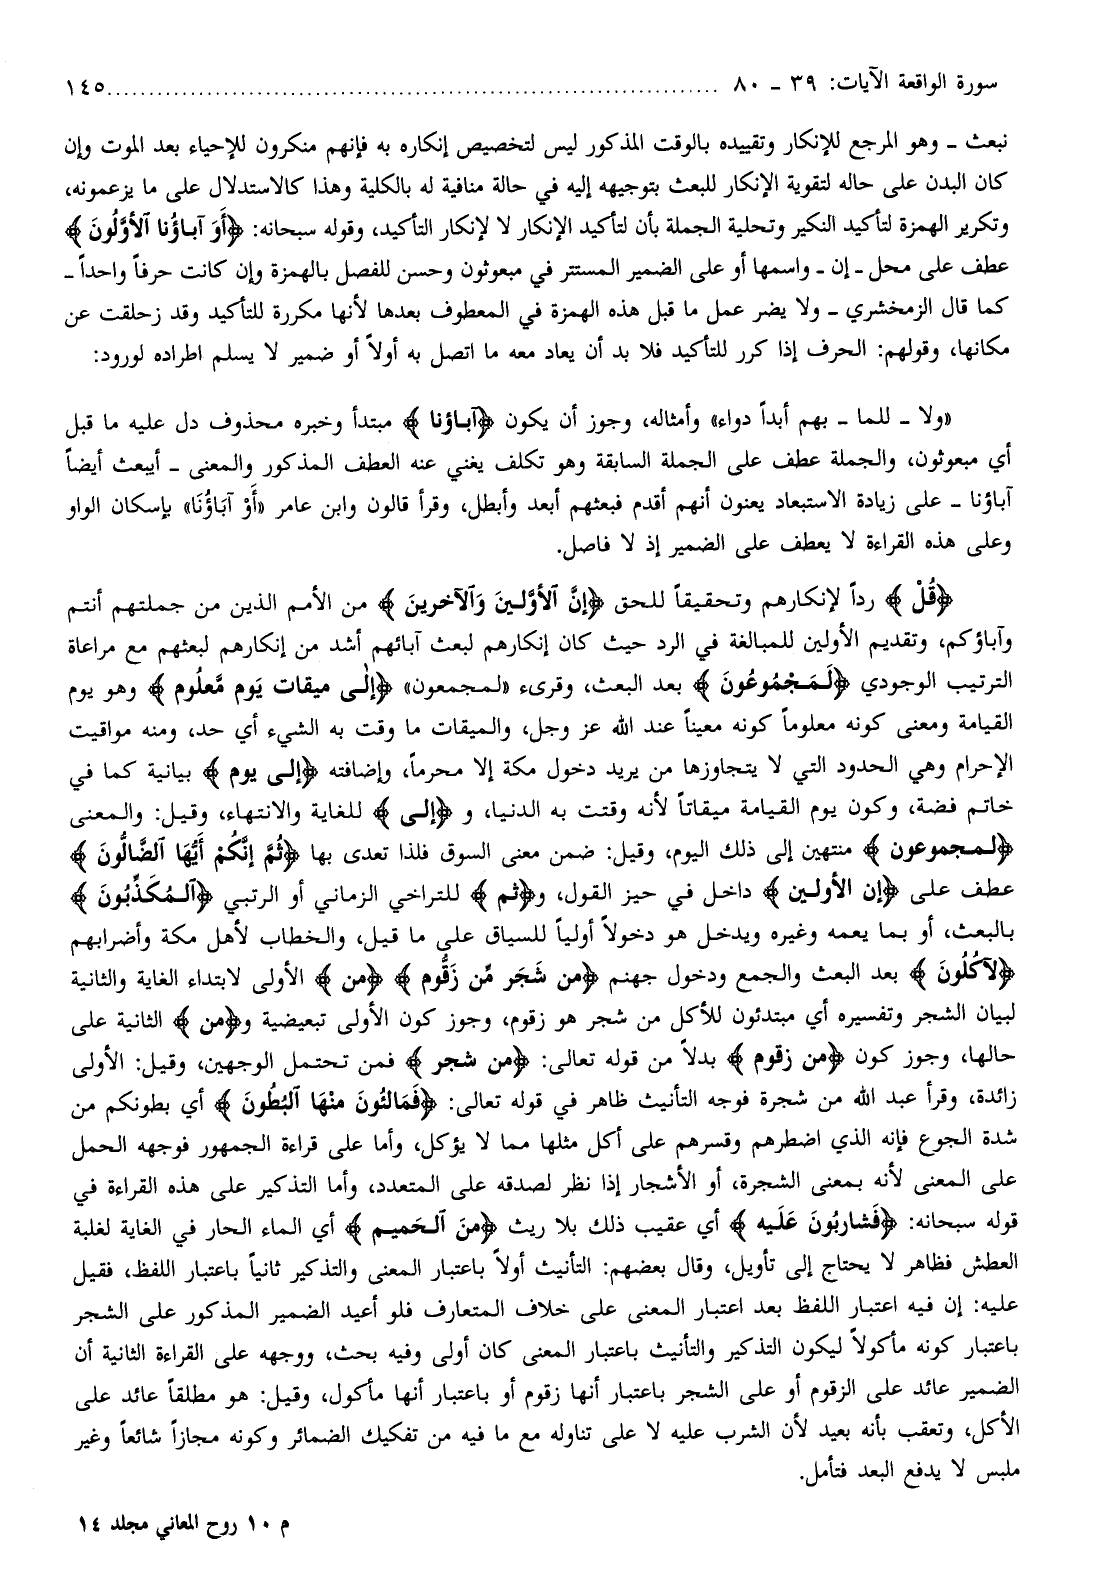 سورة الواقعة الآيات: ٣٩ ـ ٨٠ ........................................ ١٤٥
نبعث ـ وهو المرجع للإنكار وتقييده بالوقت المذكور ليس لتخصيص إنكاره به فإنهم منكرون للإحياء بعد الموت وإن
كان البدن على حاله لتقوية الإنكار للبعث بتوجيهه إليه في حالة منافية له بالكلية وهذا كالاستدلال على ما يزعمونه،
وتكرير الهمزة لتأكيد النكير وتحلية الجملة بأن لتأكيد الإنكار لا لإنكار التأكيد، وقوله سبحانه: ﴿أَوَ آباؤُنا ٱلأوَّلُونَ﴾
عطف على محل ـ إن ـ واسمها أو على الضمير المستتر في مبعوثون وحسن للفصل بالهمزة وإن كانت حرفاً واحداً ـ
كما قال الزمخشري ـ ولا يضر عمل ما قبل هذه الهمزة في المعطوف بعدها لأنها مكررة للتأكيد وقد زحلقت عن
مكانها، وقولهم: الحرف إذا كرر للتأكيد فلا بد أن يعاد معه ما اتصل به أولاً أو ضمير لا يسلم اطراده لورود:
«ولا ـ للما ـ بهم أبداً دواء» وأمثاله، وجوز أن يكون ﴿آباؤنا﴾ مبتدأ وخبره محذوف دل عليه ما قبل
أي مبعوثون، والجملة عطف على الجملة السابقة وهو تكلف يغني عنه العطف المذكور والمعنى ـ أيبعث أيضاً
آباؤنا ـ على زيادة الاستبعاد يعنون أنهم أقدم فبعثهم أبعد وأبطل، وقرأ قالون وابن عامر «أَوْ آبَاؤُنَا» بإسكان الواو
وعلى هذه القراءة لا يعطف على الضمير إذ لا فاصل.
﴿قُلْ﴾ رداً لإنكارهم وتحقيقاً للحق ﴿إنَّ ٱلأوَّلينَ وَٱلآخرينَ﴾ من الأمم الذين من جملتهم أنتم
وآباؤكم، وتقديم الأولين للمبالغة في الرد حيث كان إنكارهم لبعث آبائهم أشد من إنكارهم لبعثهم مع مراعاة
الترتيب الوجودي ﴿لَمَجْمُوعُونَ﴾ بعد البعث، وقرىء «لمجمعون» ﴿إلٰى ميقات يَوم مَّعلُوم﴾ وهو يوم
القيامة ومعنى كونه معلوماً كونه معيناً عند الله عز وجل، والميقات ما وقت به الشيء أي حد، ومنه مواقيت
الإحرام وهي الحدود التي لا يتجاوزها من يريد دخول مكة إلا محرماً، وإضافته ﴿إلى يوم﴾ بيانية كما في
خاتم فضة، وكون يوم القيامة ميقاتاً لأنه وقتت به الدنيا، و ﴿إلى﴾ للغاية والانتهاء، وقيل: والمعنى
﴿لمجموعون﴾ منتهين إلى ذلك اليوم، وقيل: ضمن معنى السوق فلذا تعدى بها ﴿ثُمَّ إنَّكُمْ أَيُّهَا ٱلضَّالُّونَ﴾
عطف على ﴿إن الأولين﴾ داخل في حيز القول، و﴿ثم﴾ للتراخي الزماني أو الرتبي ﴿ٱلمُكَذِّبُونَ﴾
بالبعث، أو بما يعمه وغيره ويدخل هو دخولاً أولياً للسياق على ما قيل، والخطاب لأهل مكة وأضرابهم
﴿لآكُلُونَ﴾ بعد البعث والجمع ودخول جهنم ﴿من شَجَر مِّن زَقُّوم﴾ ﴿من﴾ الأولى لابتداء الغاية والثانية
لبيان الشجر وتفسيره أي مبتدئون للأكل من شجر هو زقوم، وجوز كون الأولى تبعيضية و﴿من﴾ الثانية على
حالها، وجوز كون ﴿من زقوم﴾ بدلاً من قوله تعالى: ﴿من شجر﴾ فمن تحتمل الوجهين، وقيل: الأولى
زائدة، وقرأ عبد الله من شجرة فوجه التأنيث ظاهر في قوله تعالى: ﴿فَمَالئُونَ منْهَا ٱلبُطُونَ﴾ أي بطونكم من
شدة الجوع فإنه الذي اضطرهم وقسرهم على أكل مثلها مما لا يؤكل، وأما على قراءة الجمهور فوجهه الحمل
على المعنى لأنه بمعنى الشجرة، أو الأشجار إذا نظر لصدقه على المتعدد، وأما التذكير على هذه القراءة في
قوله سبحانه: ﴿فَشاربُونَ عَلَيه﴾ أي عقيب ذلك بلا ريث ﴿منَ ٱلحَميم﴾ أي الماء الحار في الغاية لغلبة
العطش فظاهر لا يحتاج إلى تأويل، وقال بعضهم: التأنيث أولاً باعتبار المعنى والتذكير ثانياً باعتبار اللفظ، فقيل
عليه: إن فيه اعتبار اللفظ بعد اعتبار المعنى على خلاف المتعارف فلو أعيد الضمير المذكور على الشجر
باعتبار كونه مأكولاً ليكون التذكير والتأنيث باعتبار المعنى كان أولى وفيه بحث، ووجهه على القراءة الثانية أن
الضمير عائد على الزقوم أو على الشجر باعتبار أنها زقوم أو باعتبار أنها مأكول، وقيل: هو مطلقاً عائد على
الأكل، وتعقب بأنه بعيد لأن الشرب عليه لا على تناوله مع ما فيه من تفكيك الضمائر وكونه مجازاً شائعاً وغير
ملبس لا يدفع البعد فتأمل.
م ١٠ روح المعاني مجلد ١٤